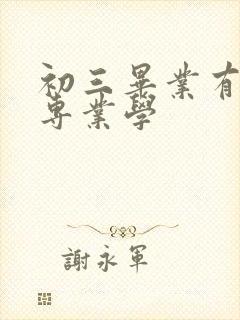 初三畢業有
專業學
謝永軍